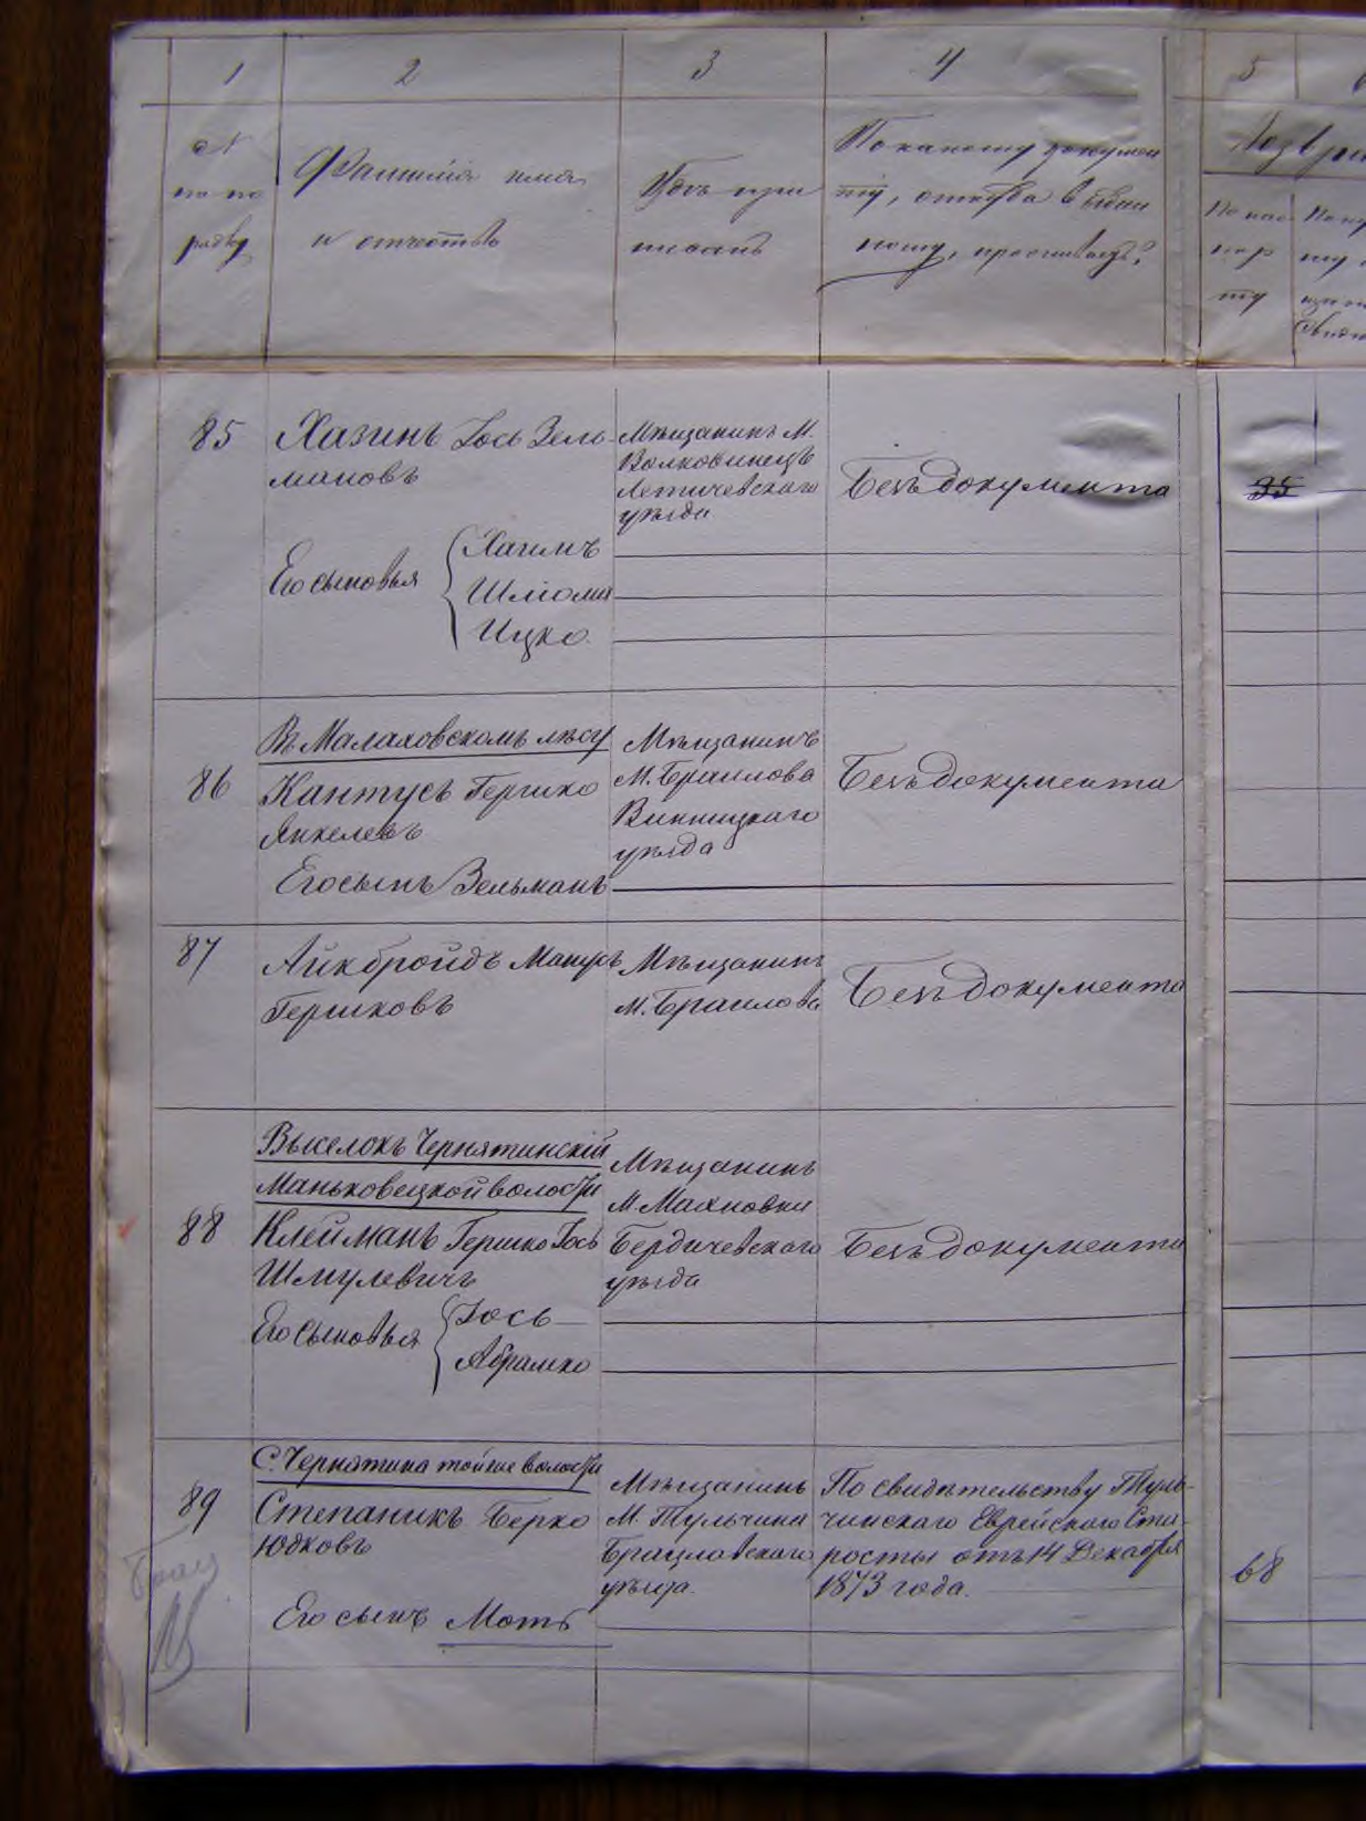 1 2 3 4 5
№
по по
рядку
Фамилія имя
и отчество
Гдѣ при
писанъ
По какому докумен
ту, откуда выдан
ному, проживаетъ?
По пас
пор
ту
85 Хазинъ Іось Зель-
мановъ
Мѣщанинъ М.
Волковинецъ
Летичевскаго
уѣзда
Безъ документа
35
Его сыновья
Хаимъ
Шліома
Ицко
Въ Малаховскомъ лѣсу
86 Кантусъ Гершко
Янкелевъ
Мѣщанинъ
М. Браилова
Винницкаго
уѣзда
Безъ документа
Его сынъ Зельманъ
87 Айкбройдъ Манусъ
Гершковъ
Мѣщанинъ
М. Браилова
Безъ документа
Выселокъ Чернятинскій
Маньковецкой волости
88 Клейманъ Гершко Іось
Шмулевичъ
Мѣщанинъ
М. Махновки
Бердичевскаго
уѣзда
Безъ документа
Его сыновья
Іось
Абрамко
С. Чернятина той же волости
89 Степаникъ Берко
Юдковъ
Мѣщанинъ
М. Тульчина
Брацлавскаго
уѣзда.
По свидѣтельству Туль-
чинскаго Еврейскаго Ста-
росты отъ 14 Декабря
1873 года.
68
Его сынъ Моть